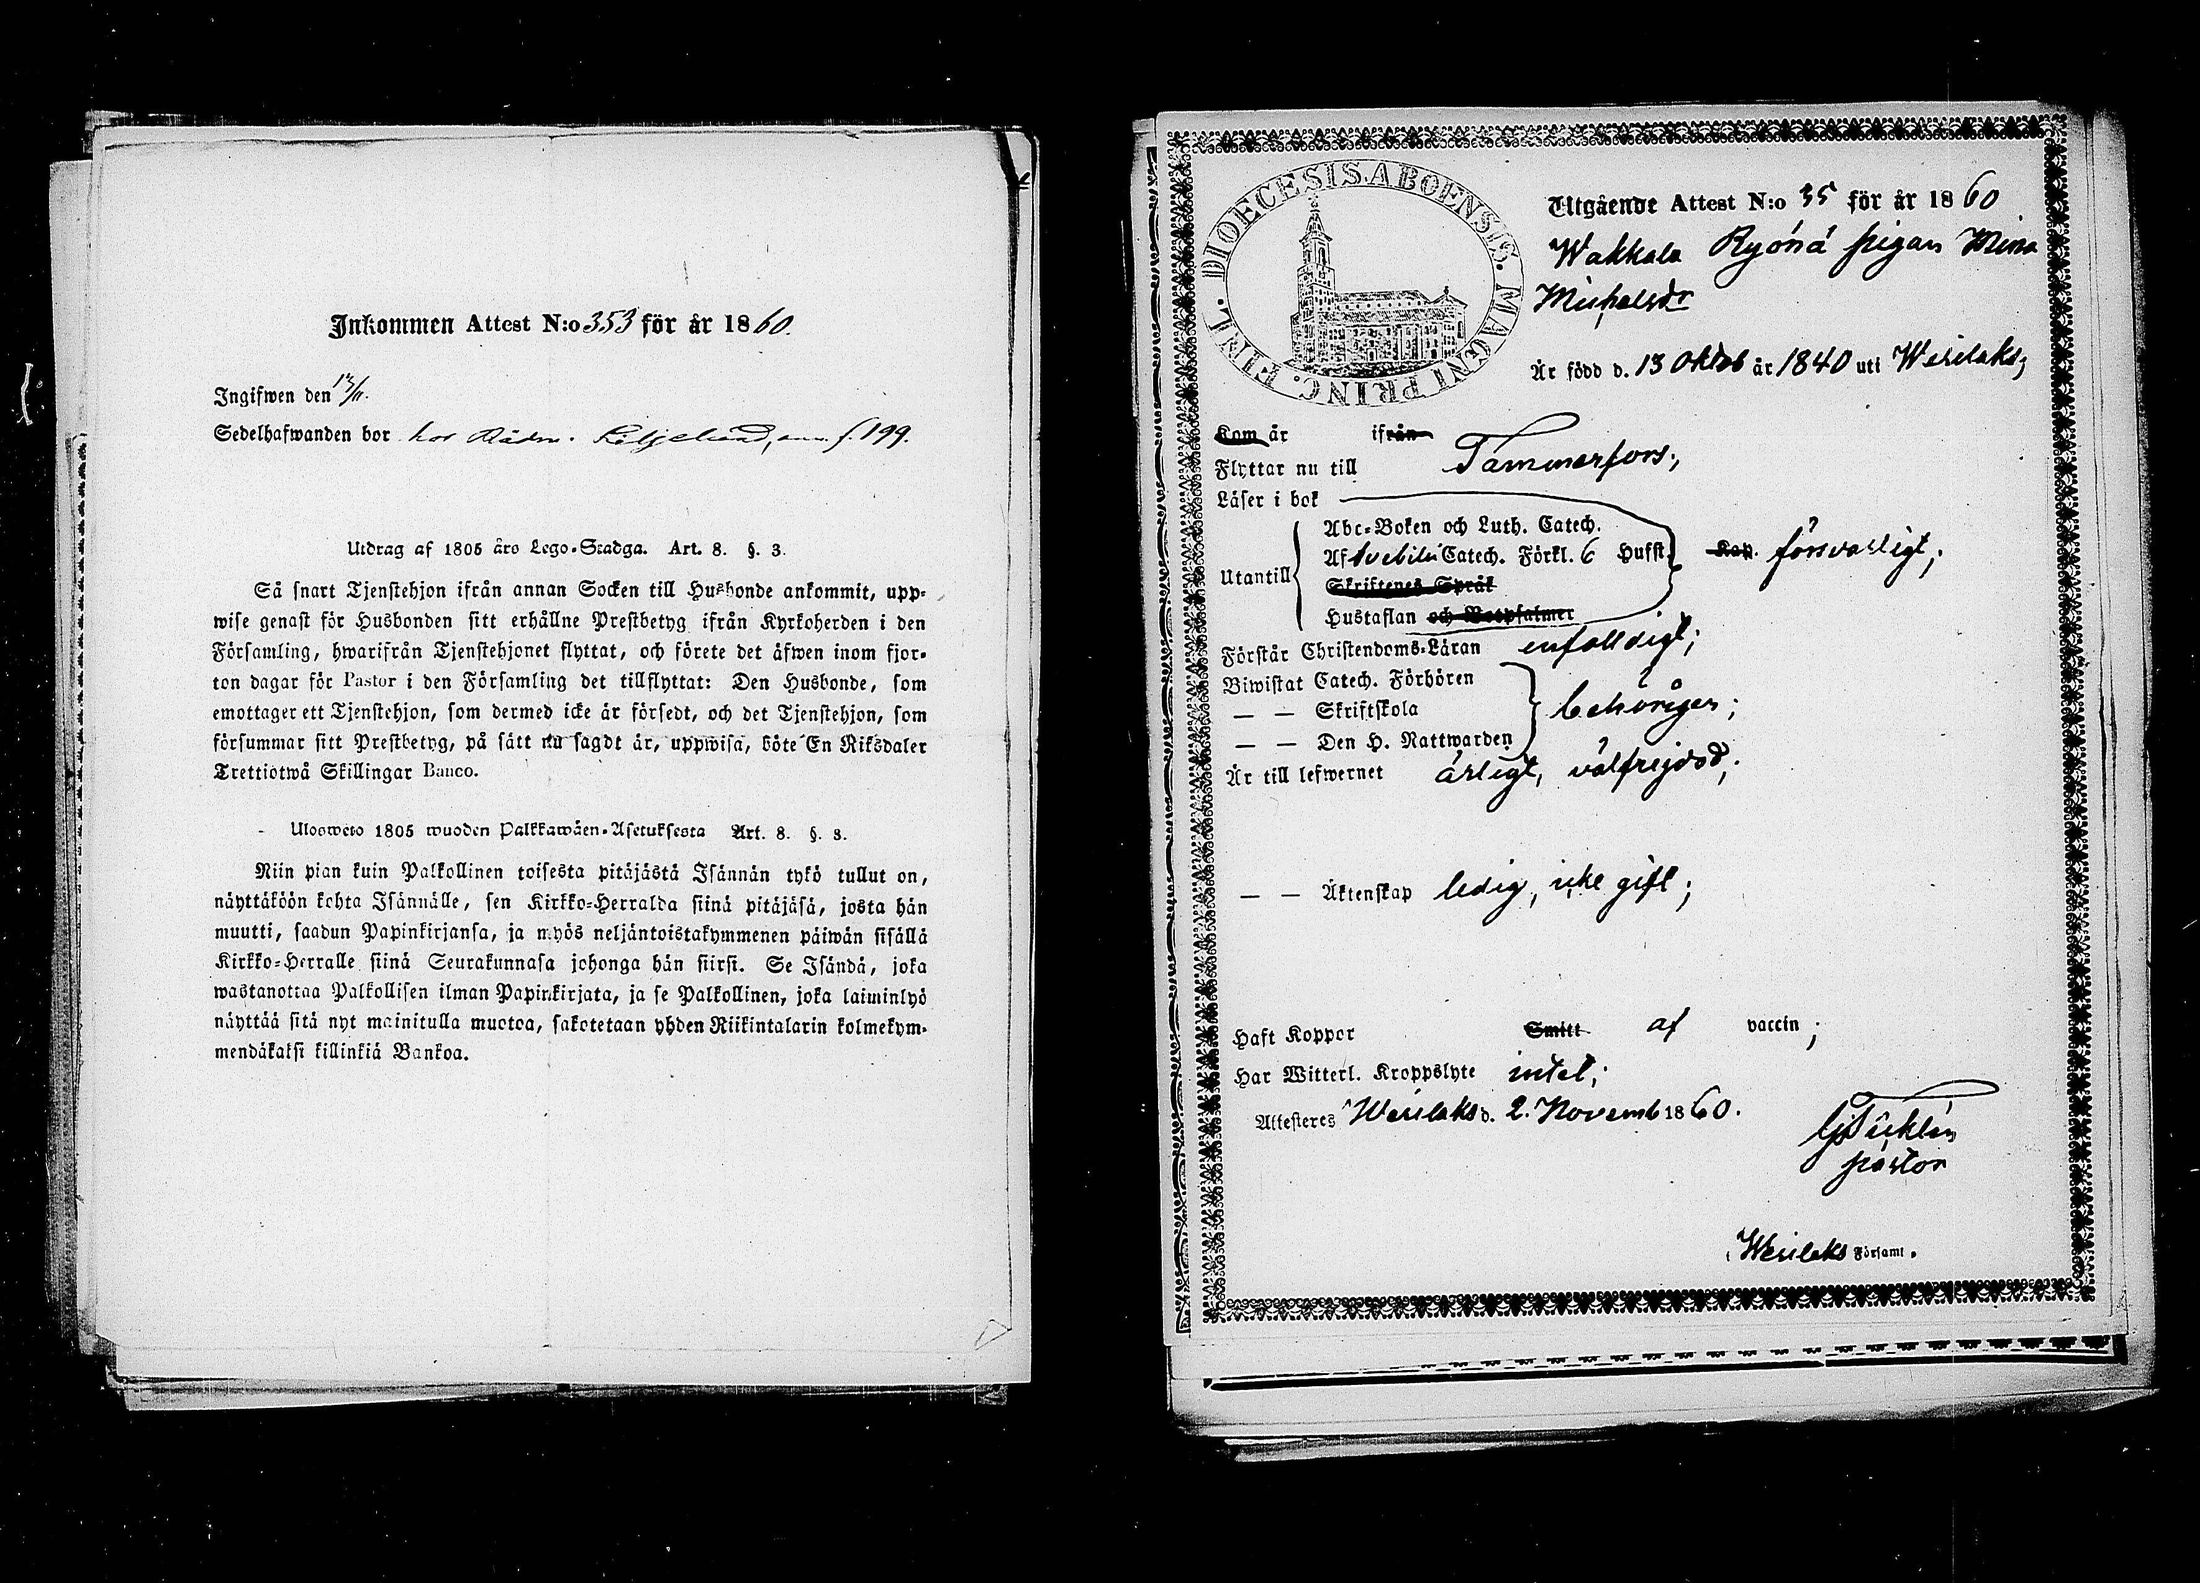 Inkommen Attest N:o 353 för år 1860.
Ingifwen den 13/11.
Sedelhafwanden bor hos Rådm. Liljelund, f. 199.
Utdrag af 1805 års Lego-Stadga. Art. 8. §. 3.
Så snart Tjenstehjon ifrån annan Socken till Husbonde ankommit, upp-
wise genast för Husbonden sitt erhållne Prestbetyg ifrån Kyrkoherden i den
Församling, hwarifrån Tjenstehjonet flyttat, och förete det äfwen inom fjor-
ton dagar för Pastor i den Församling det tillflyttat: Den Husbonde, som
emottager ett Tjenstehjon, som dermed icke är försedt, och det Tjenstehjon, som
försummar sitt Prestbetyg, på sätt nu sagdt är, uppwisa, böte En Riksdaler
Trettiotwå Skillingar Banco.
Ulosweto 1805 wuoden Palkkawäen-Asetuksesta Art. 8. §. 3.
Niin pian kuin Palkollinen toisesta pitäjästä Isännän tykö tullut on,
näyttäköön kohta Isännälle, sen Kirkko-Herralda siinä pitäjäsä, josta hän
muutti, saadun Papinkirjansa, ja myös neljäntoistakymmenen päiwän sisällä
Kirkko-Herralle siinä Seurakunnasa johonga hän siirsi. Se Isändä, joka
wastanottaa Palkollisen ilman Papinkirjata, ja se Palkollinen, joka laiminlyö
näyttää sitä nyt mainitulla muotoa, sakotetaan yhden Riikintalarin kolmekym-
mendäkaksi killinkiä Bankoa.
FINL. DIOECESIS. ABOENSIS. MAGNI PRINC.
Utgående Attest N:o 35 för år 1860
Wakkala Ryönä pigan Mina
Michelsdr
Är född d. 13 Oktob år 1840 uti Wesilaks;
Kom år ifrån
Flyttar nu till Tammerfors;
Läser i bok
Utantill
Abc-Boken och Luth. Catech.
Af Svebilii Catech. Förkl. 6 Hufst. Kap. försvarligt;
Skriftenes Språk
Hustaflan och Botpsalmer
Förstår Christendoms-Läran enfalldigt;
Biwistat Catech. Förhören
— — Skriftskola behörigen;
— — Den H. Nattwarden
Är till lefwernet ärligt, välfrejdad;
— — Äktenskap ledig, icke gift;
Haft Koppor Smitt af vaccin;
Har Witterl. Kroppslyte intet;
Attesteres Wesilaks d. 2. Novemb 1860.
pastor
i Wesilaks Församl.